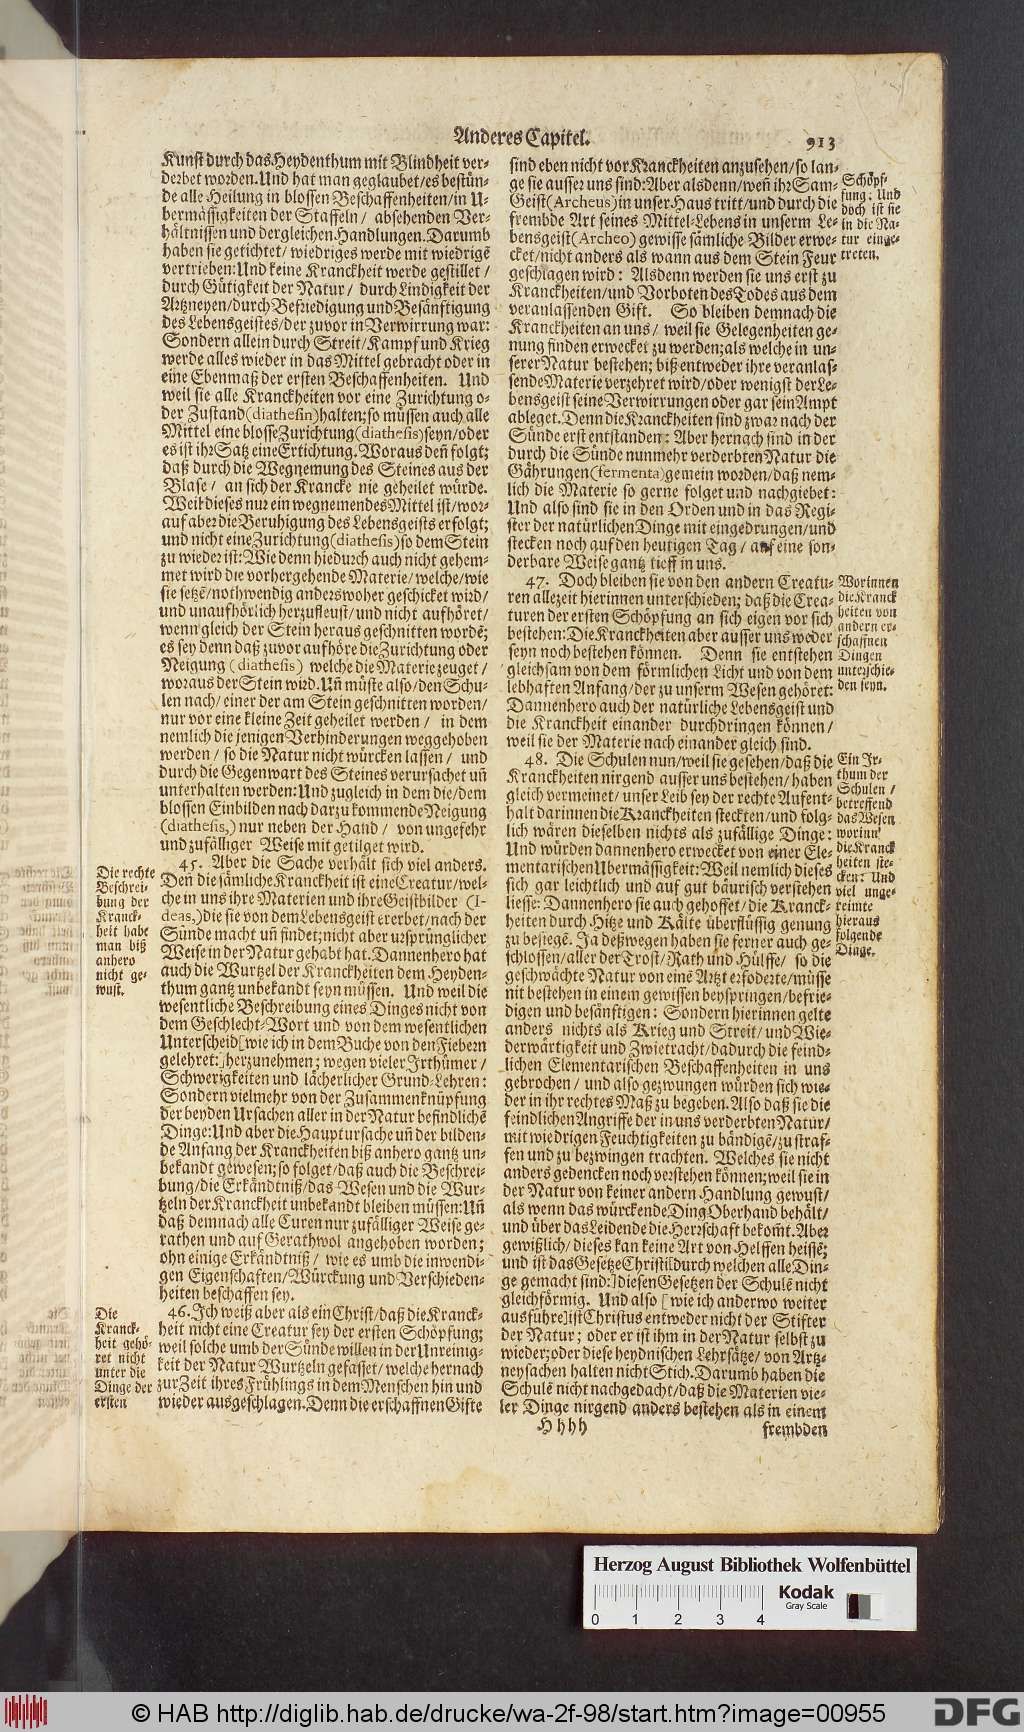 Anderes Capitel. 913
Kunst durch das Heydenthum mit Blindheit ver-
derbet worden. Und hat man geglaubet/es bestün-
de alle Heilung in blossen Beschaffenheiten/in U-
bermässigkeiten der Staffeln/ absehenden Ver-
hältnissen und dergleichen Handlungen. Darumb
haben sie getichtet/ wiedriges werde mit wiedrigē
vertrieben: Und keine Kranckheit werde gestillet /
durch Gütigkeit der Natur/ durch Lindigkeit der
Artzneyen/durch Befriedigung und Besänftigung
des Lebensgeistes/der zuvor in Verwirrung war:
Sondern allein durch Streit/Kampf und Krieg
werde alles wieder in das Mittel gebracht oder in
eine Ebenmaß der ersten Beschaffenheiten. Und
weil sie alle Kranckheiten vor eine Zurichtung o-
der Zustand (diathesin) halten; so müssen auch alle
Mittel eine blosse Zurichtung (diathesis) seyn/oder
es ist ihr Satz eine Ertichtung. Woraus deñ folgt;
daß durch die Wegnemung des Steines aus der
Blase/ an sich der Krancke nie geheilet würde.
Weil dieses nur ein wegnemendes Mittel ist/wor-
auf aber die Beruhigung des Lebensgeists erfolgt;
und nicht eine Zurichtung (diathesis) so dem Stein
zu wieder ist: Wie denn hiedurch auch nicht gehem-
met wird die vorhergehende Materie/welche/wie
sie setzē/nothwendig anderswoher geschicket wird/
und unaufhörlich herzufleust/und nicht aufhöret/
wenn gleich der Stein heraus geschnitten wordē;
es sey denn daß zuvor aufhöre die Zurichtung oder
Neigung (diathesis) welche die Materie zeuget/
woraus der Stein wird. Uñ müste also/den Schu-
len nach/einer der am Stein geschnitten worden/
nur vor eine kleine Zeit geheilet werden/ in dem
nemlich die jenigen Verhinderungen weggehoben
werden/ so die Natur nicht würcken lassen/ und
durch die Gegenwart des Steines verursachet uñ
unterhalten werden: Und zugleich in dem die/dem
blossen Einbilden nach darzu kommende Neigung
(diathesis,) nur neben der Hand/ von ungefehr
und zufälliger Weise mit getilget wird.
45. Aber die Sache verhält sich viel anders.
Deñ die sämliche Kranckheit ist eine Creatur/wel-
che in uns ihre Materien und ihre Geistbilder (I-
deas,) die sie von dem Lebensgeist ererbet/nach der
Sünde macht uñ findet; nicht aber ursprünglicher
Weise in der Natur gehabt hat. Dannenhero hat
auch die Wurtzel der Kranckheiten dem Heyden-
thum gantz unbekandt seyn müssen. Und weil die
wesentliche Beschreibung eines Dinges nicht von
dem Geschlecht-Wort und von dem wesentlichen
Unterscheid [wie ich in dem Buche von den Fiebern
gelehret:] herzunehmen; wegen vieler Irthümer/
Schwerigkeiten und lächerlicher Grund-Lehren:
Sondern vielmehr von der Zusammenknüpfung
der beyden Ursachen aller in der Natur befindlichē
Dinge: Und aber die Hauptursache uñ der bilden-
de Anfang der Kranckheiten biß anhero gantz un-
bekandt gewesen; so folget/daß auch die Beschrei-
bung/die Erkändtniß/das Wesen und die Wur-
tzeln der Kranckheit unbekandt bleiben müssen: Uñ
daß demnach alle Curen nur zufälliger Weise ge-
rathen und auf Gerathwol angehoben worden;
ohn einige Erkändtniß/ wie es umb die inwendi-
gen Eigenschaften/Würckung und Verschieden-
heiten beschaffen sey.
46. Ich weiß aber als ein Christ/daß die Kranck-
heit nicht eine Creatur sey der ersten Schöpfung;
weil solche umb der Sünde willen in der Unreinig-
keit der Natur Wurtzeln gefasset/welche hernach
zur Zeit ihres Frühlings in dem Menschen hin und
wieder ausgeschlagen. Denn die erschaffnen Gifte
Die rechte
Beschrei-
bung der
Kranck-
heit habe
man biß
anhero
nicht ge-
wust.
Die
Kranck-
heit gehö-
ret nicht
unter die
Dinge der
ersten
sind eben nicht vor Kranckheiten anzusehen/so lan-
ge sie ausser uns sind: Aber alsdenn/weñ ihr Sam-
Geist (Archeus) in unser Haus tritt/und durch die
frembde Art seines Mittel-Lebens in unserm Le-
bensgeist (Archeo) gewisse sämliche Bilder erwe-
cket/nicht anders als wann aus dem Stein Feur
geschlagen wird: Alsdenn werden sie uns erst zu
Kranckheiten/und Vorboten des Todes aus dem
veranlassenden Gift. So bleiben demnach die
Kranckheiten an uns/ weil sie Gelegenheiten ge-
nung finden erwecket zu werden; als welche in un-
serer Natur bestehen; biß entweder ihre veranlas-
sende Materie verzehret wird/oder wenigst der Le-
bensgeist seine Verwirrungen oder gar sein Ampt
ableget. Denn die Kranckheiten sind zwar nach der
Sünde erst entstanden: Aber hernach sind in der
durch die Sünde nunmehr verderbten Natur die
Gährungen (fermenta) gemein worden/daß nem-
lich die Materie so gerne folget und nachgiebet:
Und also sind sie in den Orden und in das Regi-
ster der natürlichen Dinge mit eingedrungen/und
stecken noch auf den heutigen Tag/ auf eine son-
derbare Weise gantz tieff in uns.
47. Doch bleiben sie von den andern Creatu-
ren allezeit hierinnen unterschieden; daß die Crea-
turen der ersten Schöpfung an sich eigen vor sich
bestehen: Die Kranckheiten aber ausser uns weder
seyn noch bestehen können. Denn sie entstehen
gleichsam von dem förmlichen Licht und von dem
lebhaften Anfang/der zu unserm Wesen gehöret:
Dannenhero auch der natürliche Lebensgeist und
die Kranckheit einander durchdringen können/
weil sie der Materie nach einander gleich sind.
48. Die Schulen nun/weil sie gesehen/daß die
Kranckheiten nirgend ausser uns bestehen/haben
gleich vermeinet/unser Leib sey der rechte Aufent-
halt darinnen die Kranckheiten steckten/und folg-
lich wären dieselben nichts als zufällige Dinge:
Und würden dannenhero erwecket von einer Ele-
mentarischen Ubermässigkeit: Weil nemlich dieses
sich gar leichtlich und auf gut bäurisch verstehen
liesse: Dannenhero sie auch gehoffet/die Kranck-
heiten durch Hitze und Kälte überflüssig genung
zu besiegē. Ja deßwegen haben sie ferner auch ge-
schlossen/aller der Trost/Rath und Hülffe/ so die
geschwächte Natur von einē Artzt erfoderte/müsse
nit bestehen in einem gewissen beyspringen/befrie-
digen und besänftigen: Sondern hierinnen gelte
anders nichts als Krieg und Streit/und Wie-
derwärtigkeit und Zwietracht/dadurch die feind-
lichen Elementarischen Beschaffenheiten in uns
gebrochen/ und also gezwungen würden sich wie-
der in ihr rechtes Maß zu begeben. Also daß sie die
feindlichen Angriffe der in uns verderbten Natur/
mit wiedrigen Feuchtigkeiten zu bändigē/zu straf-
fen und zu bezwingen trachten. Welches sie nicht
anders gedencken noch verstehen können; weil sie in
der Natur von keiner andern Handlung gewust/
als wenn das würckende Ding Oberhand behält/
und über das Leidende die Herrschaft bekom̃t. Aber
gewißlich/dieses kan keine Art von Helffen heissē;
und ist das Gesetze Christi [durch welchen alle Din-
ge gemacht sind:] diesen Gesetzen der Schulē nicht
gleichförmig. Und also [wie ich anderwo weiter
ausführe] ist Christus entweder nicht der Stifter
der Natur; oder er ist ihm in der Natur selbst zu
wieder; oder diese heydnischen Lehrsätze/von Artz-
neysachen halten nicht Stich. Darumb haben die
Schulē nicht nachgedacht/daß die Materien vie-
ler Dinge nirgend anders bestehen als in einem
Hhhh frembden
Schöpf-
fung: Und
doch ist sie
in die Na-
tur einge-
treten.
Worinnen
die Kranck
heiten von
andern er-
schaffnen
Dingen
unterschie-
den seyn.
Ein Jr-
thum der
Schulen/
betreffend
das Wesen
worinn
die Kranck
heiten ste-
cken: Und
viel unge-
reimte
hieraus
folgende
Dinge.
Herzog August Bibliothek Wolfenbüttel
Kodak
Gray Scale
0 1 2 3 4
© HAB http://diglib.hab.de/drucke/wa-2f-98/start.htm?image=00955
DFG